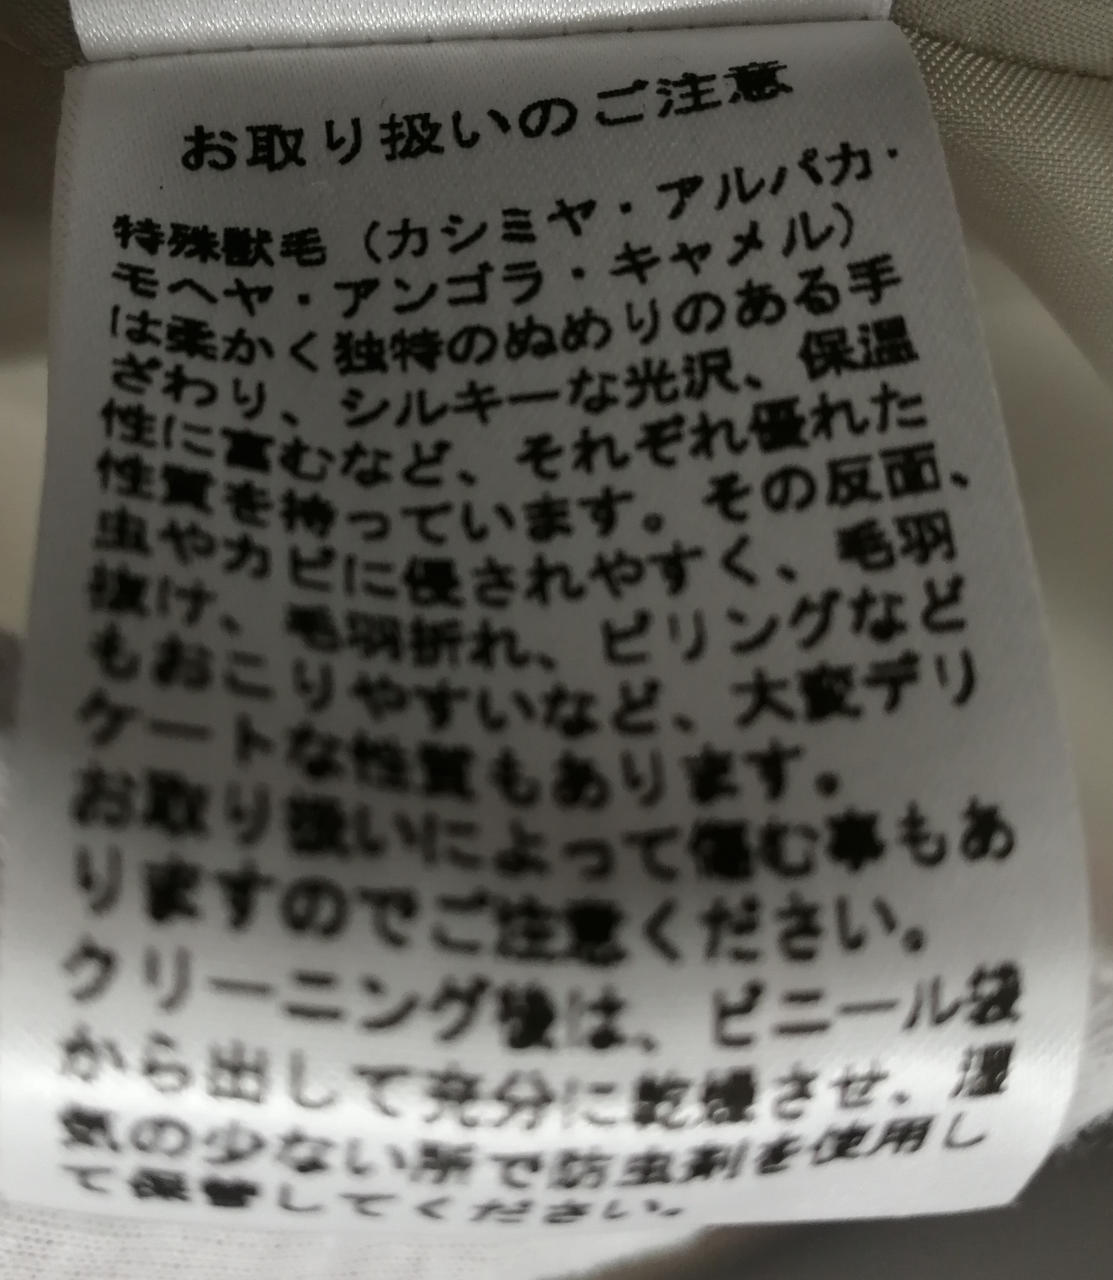 お取り扱いのご注意
特殊獣毛（カシミヤ・アルパカ・
モヘヤ・アンゴラ・キャメル）
は柔かく独特のぬめりのある手
ざわり、シルキーな光沢、保温
性に富むなど、それぞれ優れた
性質を持っています。その反面、
虫やカビに侵されやすく、毛羽
抜け、毛羽折れ、ピリングなど
もおこりやすいなど、大変デリ
ケートな性質もあります。
お取り扱いによって傷む事もあ
りますのでご注意ください。
クリーニング後は、ビニール袋
から出して充分に乾燥させ、湿
気の少ない所で防虫剤を使用し
て保管してください。